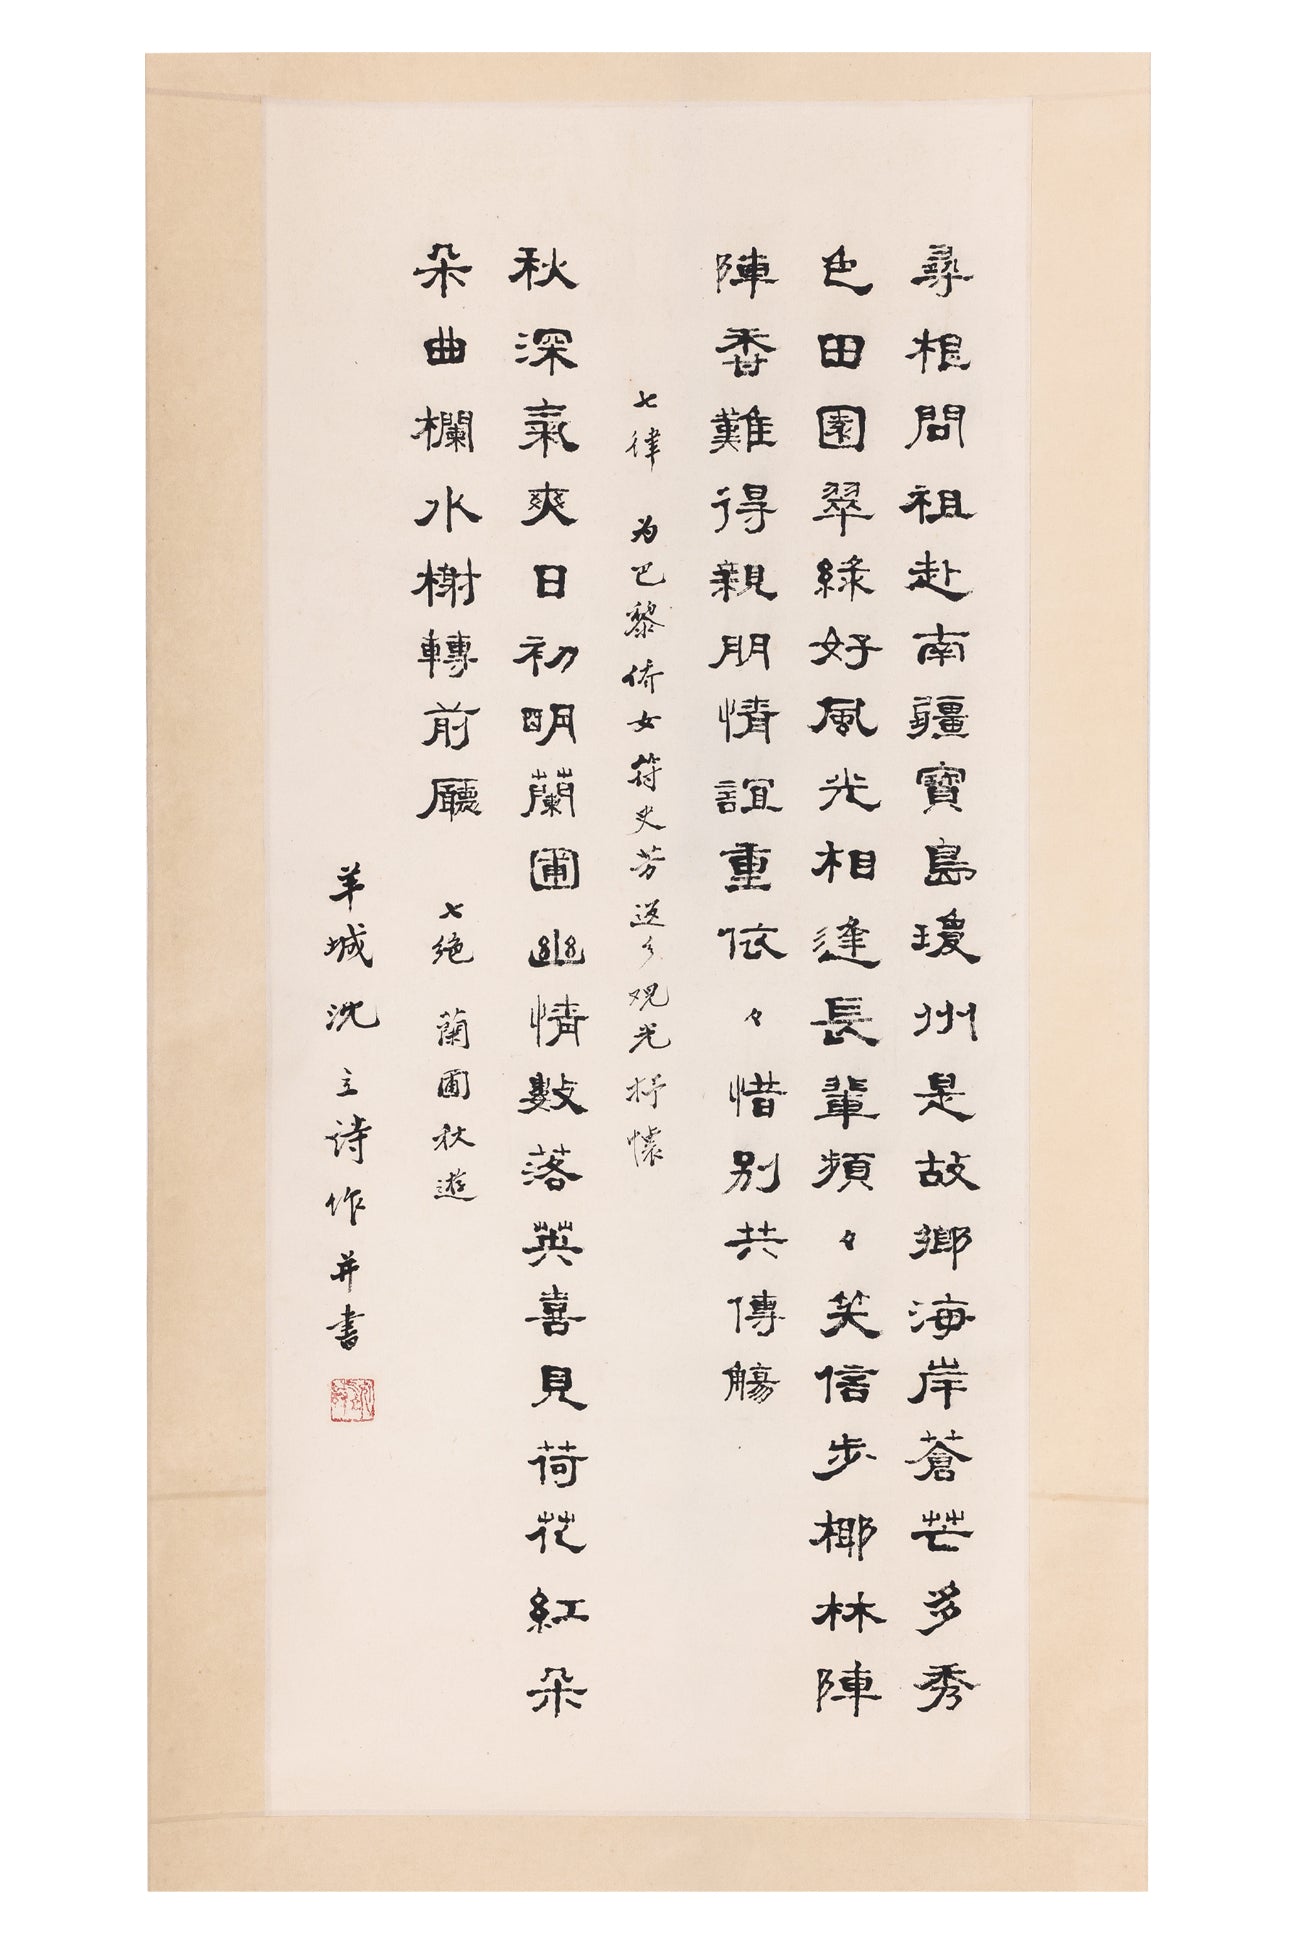 尋根問祖赴南疆寶島瓊州是故鄉海岸蒼芒多秀
色田園翠綠好風光相逢長輩頻々笑信步椰林陣
陣香難得親朋情誼重依々惜别共傳觴
七律 为巴黎侨女符史芳返乡观光抒懷
秋深氣爽日初明蘭圃幽情數落英喜見荷花紅朵
朵曲欄水榭轉前廳 七絕 蘭圃秋遊
羊城沈立诗作并書